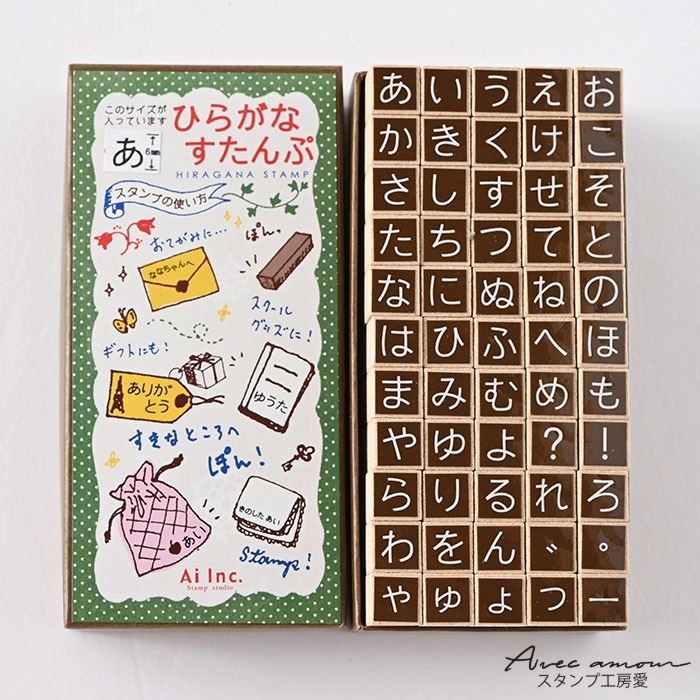 このサイズが
入っています
あ
6mm
ひらがな
すたんぷ
HIRAGANA STAMP
スタンプの使い方
おてがみに…
ぽんっ
ななちゃんへ
スクール
グッズに!
ギフトにも!
ありが
とう
ゆうた
すきなところへ
ぽん!
あい
きのした あい
Stamps!
Ai Inc.
Stamp studio
あいうえお
かきくけこ
さしすせそ
たちつてと
なにぬねの
はひふへほ
まみむめも
やゆよ?!
らりるれろ
わをん゛゜
ゃゅょっー
Avec amour
スタンプ工房愛